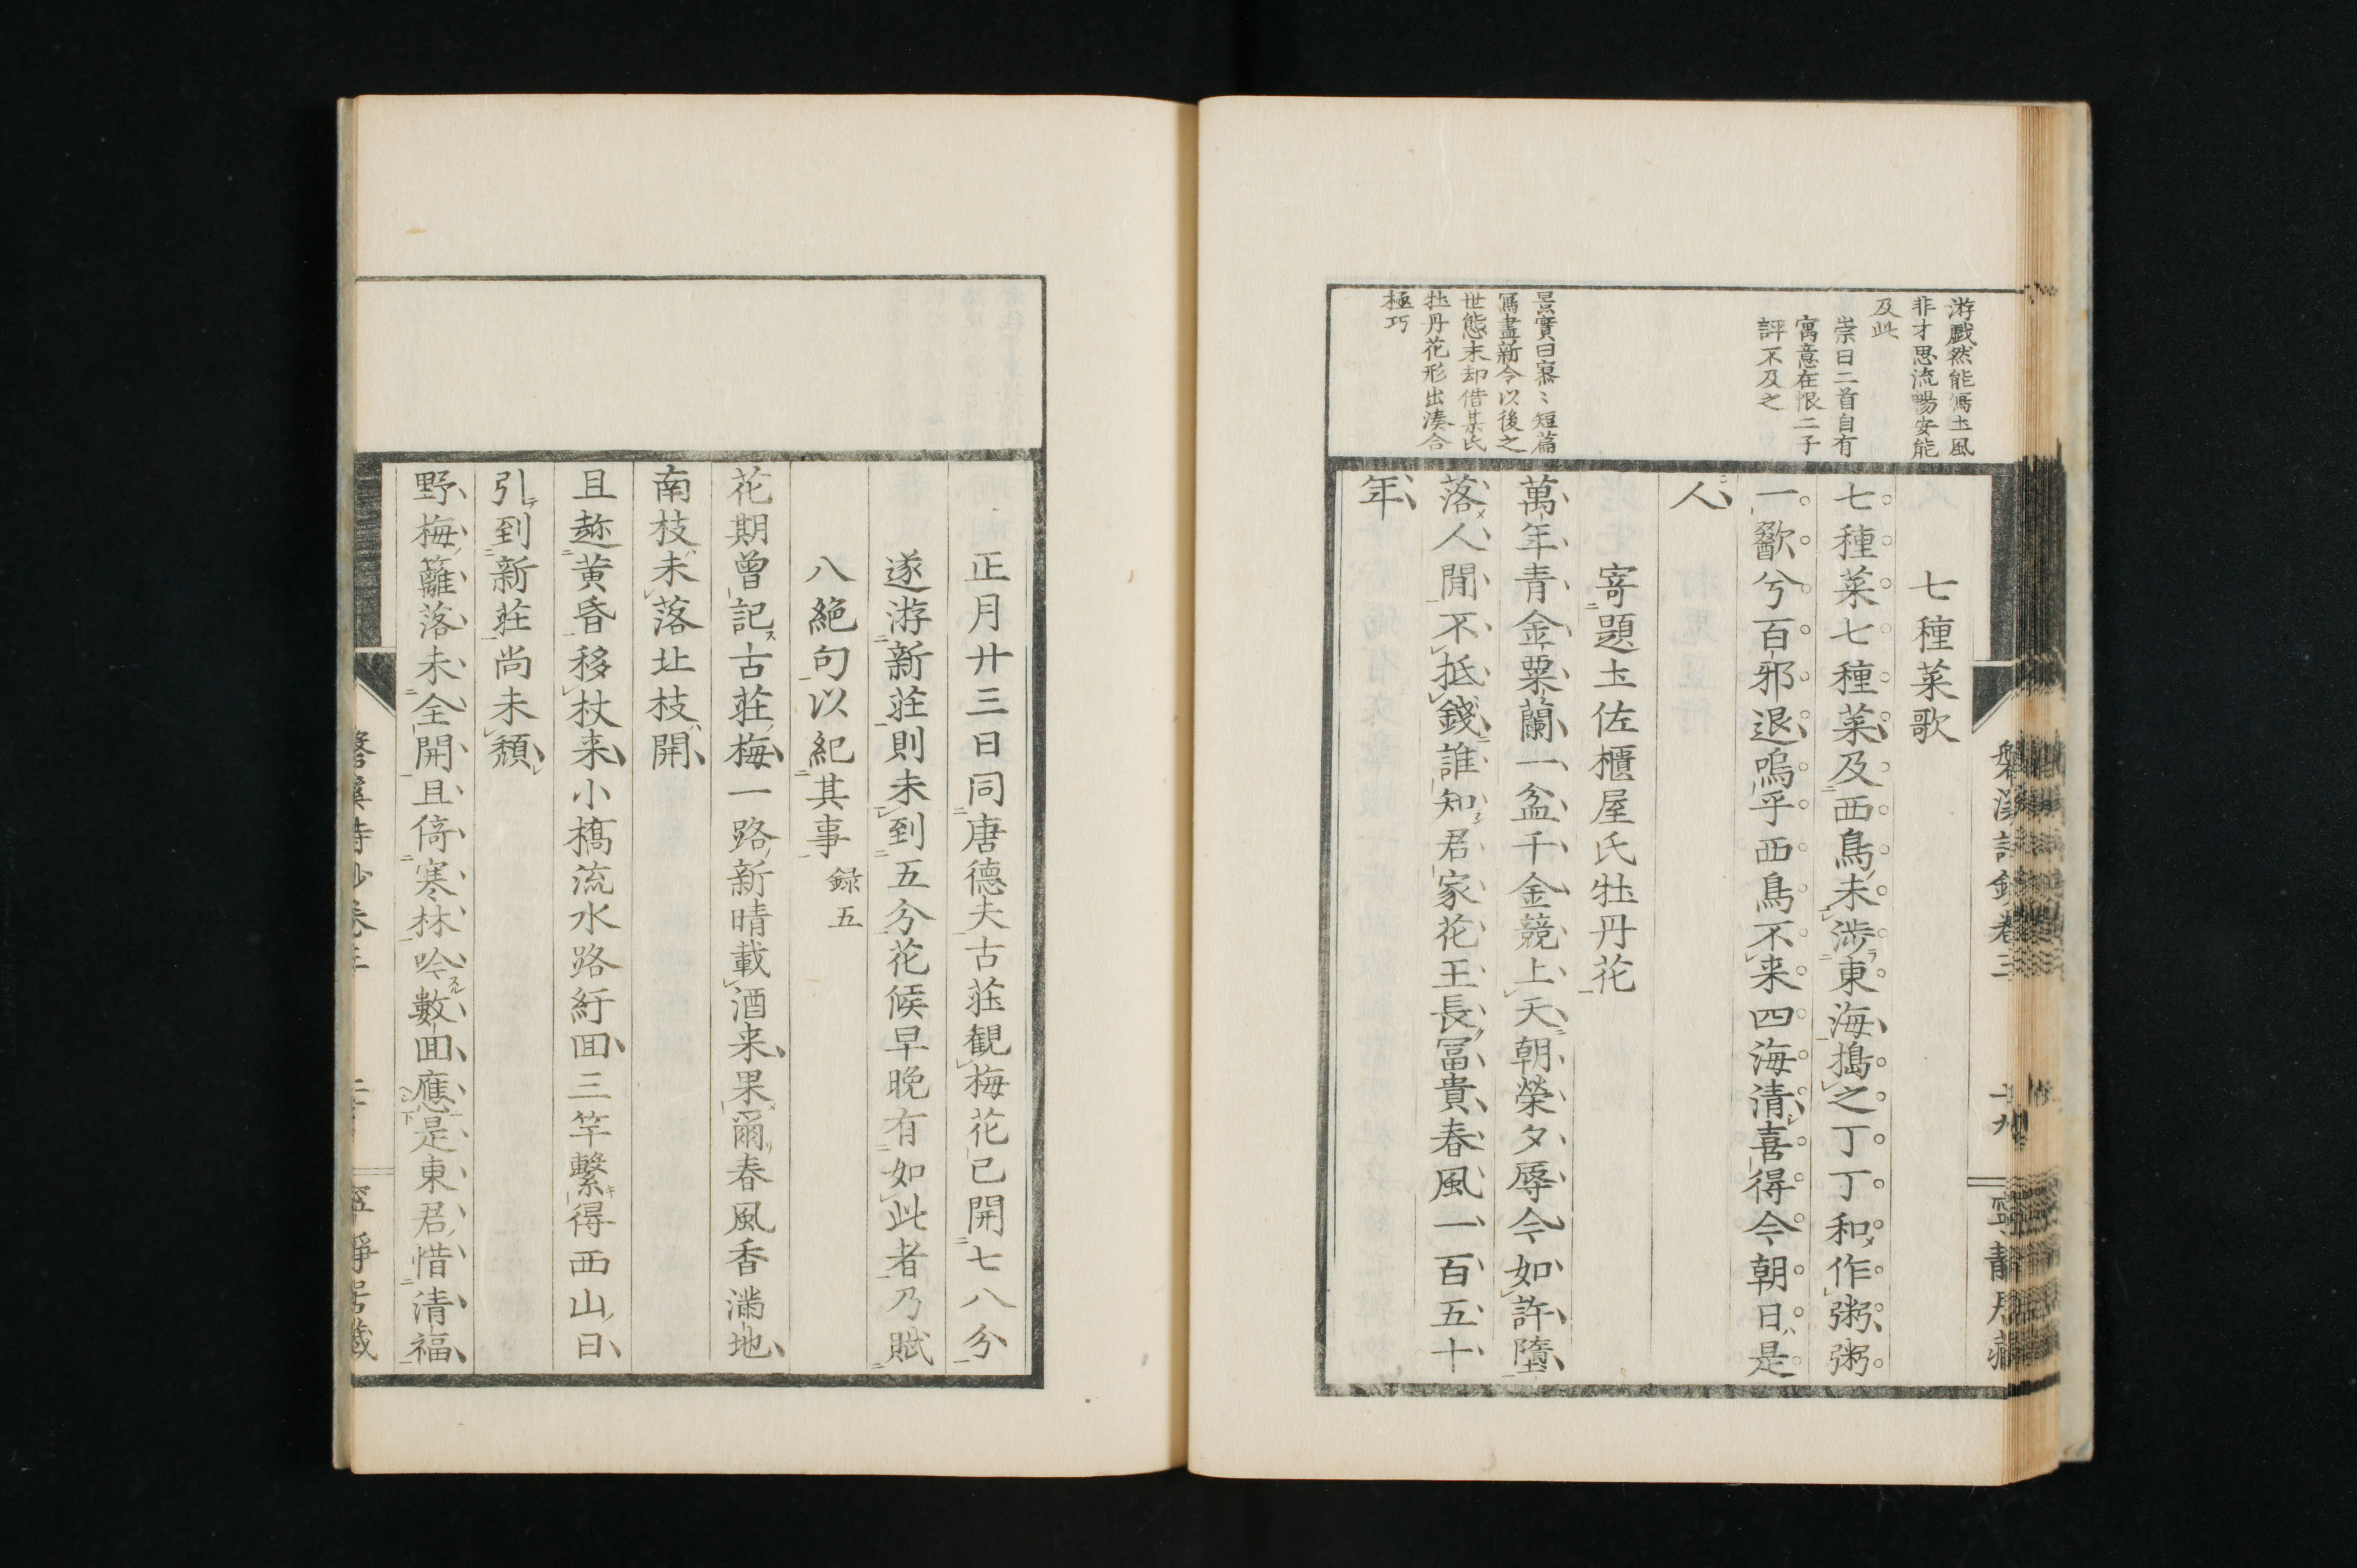 游戲然能寫土風
非才思流暢安能
及此
崇曰二首自有
寓意在恨二子
評不及之
景實曰寥〻短篇
寫盡新令以後之
世態末却借某氏
牡丹花形出湊合
極巧
七種菜歌
七種菜七種菜及西鳥未涉東海搗之丁丁和作粥粥
一歠兮百邪退嗚乎西鳥不来四海清喜得今朝日是
人
寄題土佐櫃屋氏牡丹花
萬年青金粟蘭一盆千金競上天朝榮夕辱今如許墮
落人間不抵錢誰知君家花王長冨貴春風一百五十
年
正月廿三日同唐德夫古莊観梅花已開七八分
遂游新莊則未到五分花候早晚有如此者乃賦
八絶句以紀其事 録五
花期曾記古莊梅一路新晴載酒来果爾春風香滿地
南枝未落北枝開
且趂黄昏移杖来小橋流水路紆囬三竿繫得西山日
引到新莊尚未頽
野梅籬落未全開且倚寒林吟數囬應是東君惜清福